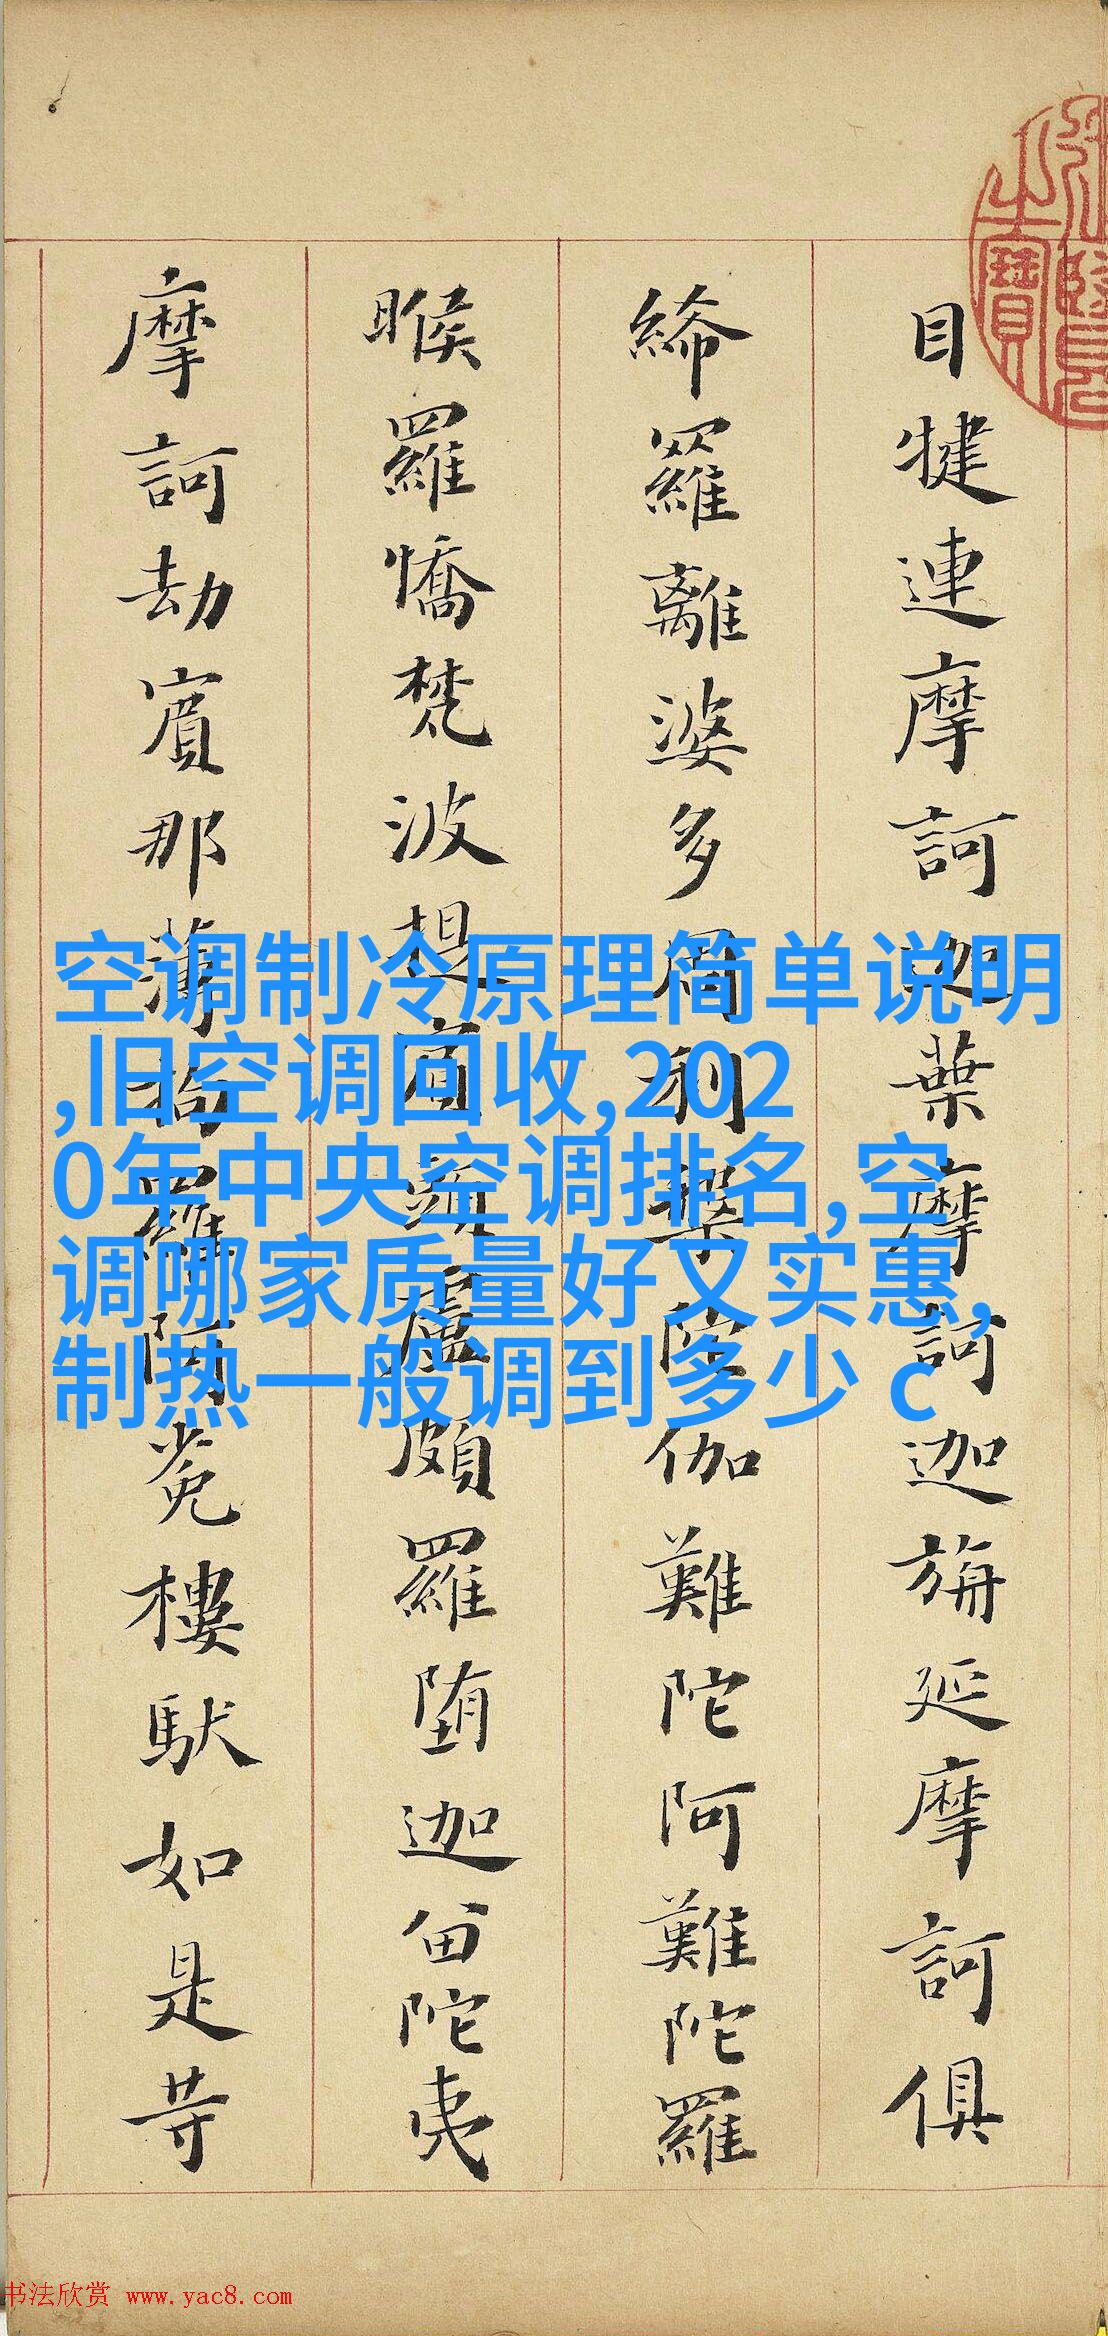 目犍連摩訶迦葉摩訶迦旃延摩訶俱
絺羅離婆多周利槃陀伽難陀阿難陀羅
睺羅憍梵波提賓頭盧頗羅堕迦留陀夷
摩訶劫賓那薄拘羅阿㝹樓馱如是等
空调制冷原理简单说明
,旧空调回收,202
0年中央空调排名,空
调哪家质量好又实惠,
制热一般调到多少 c
书法欣赏 www.yac8.com